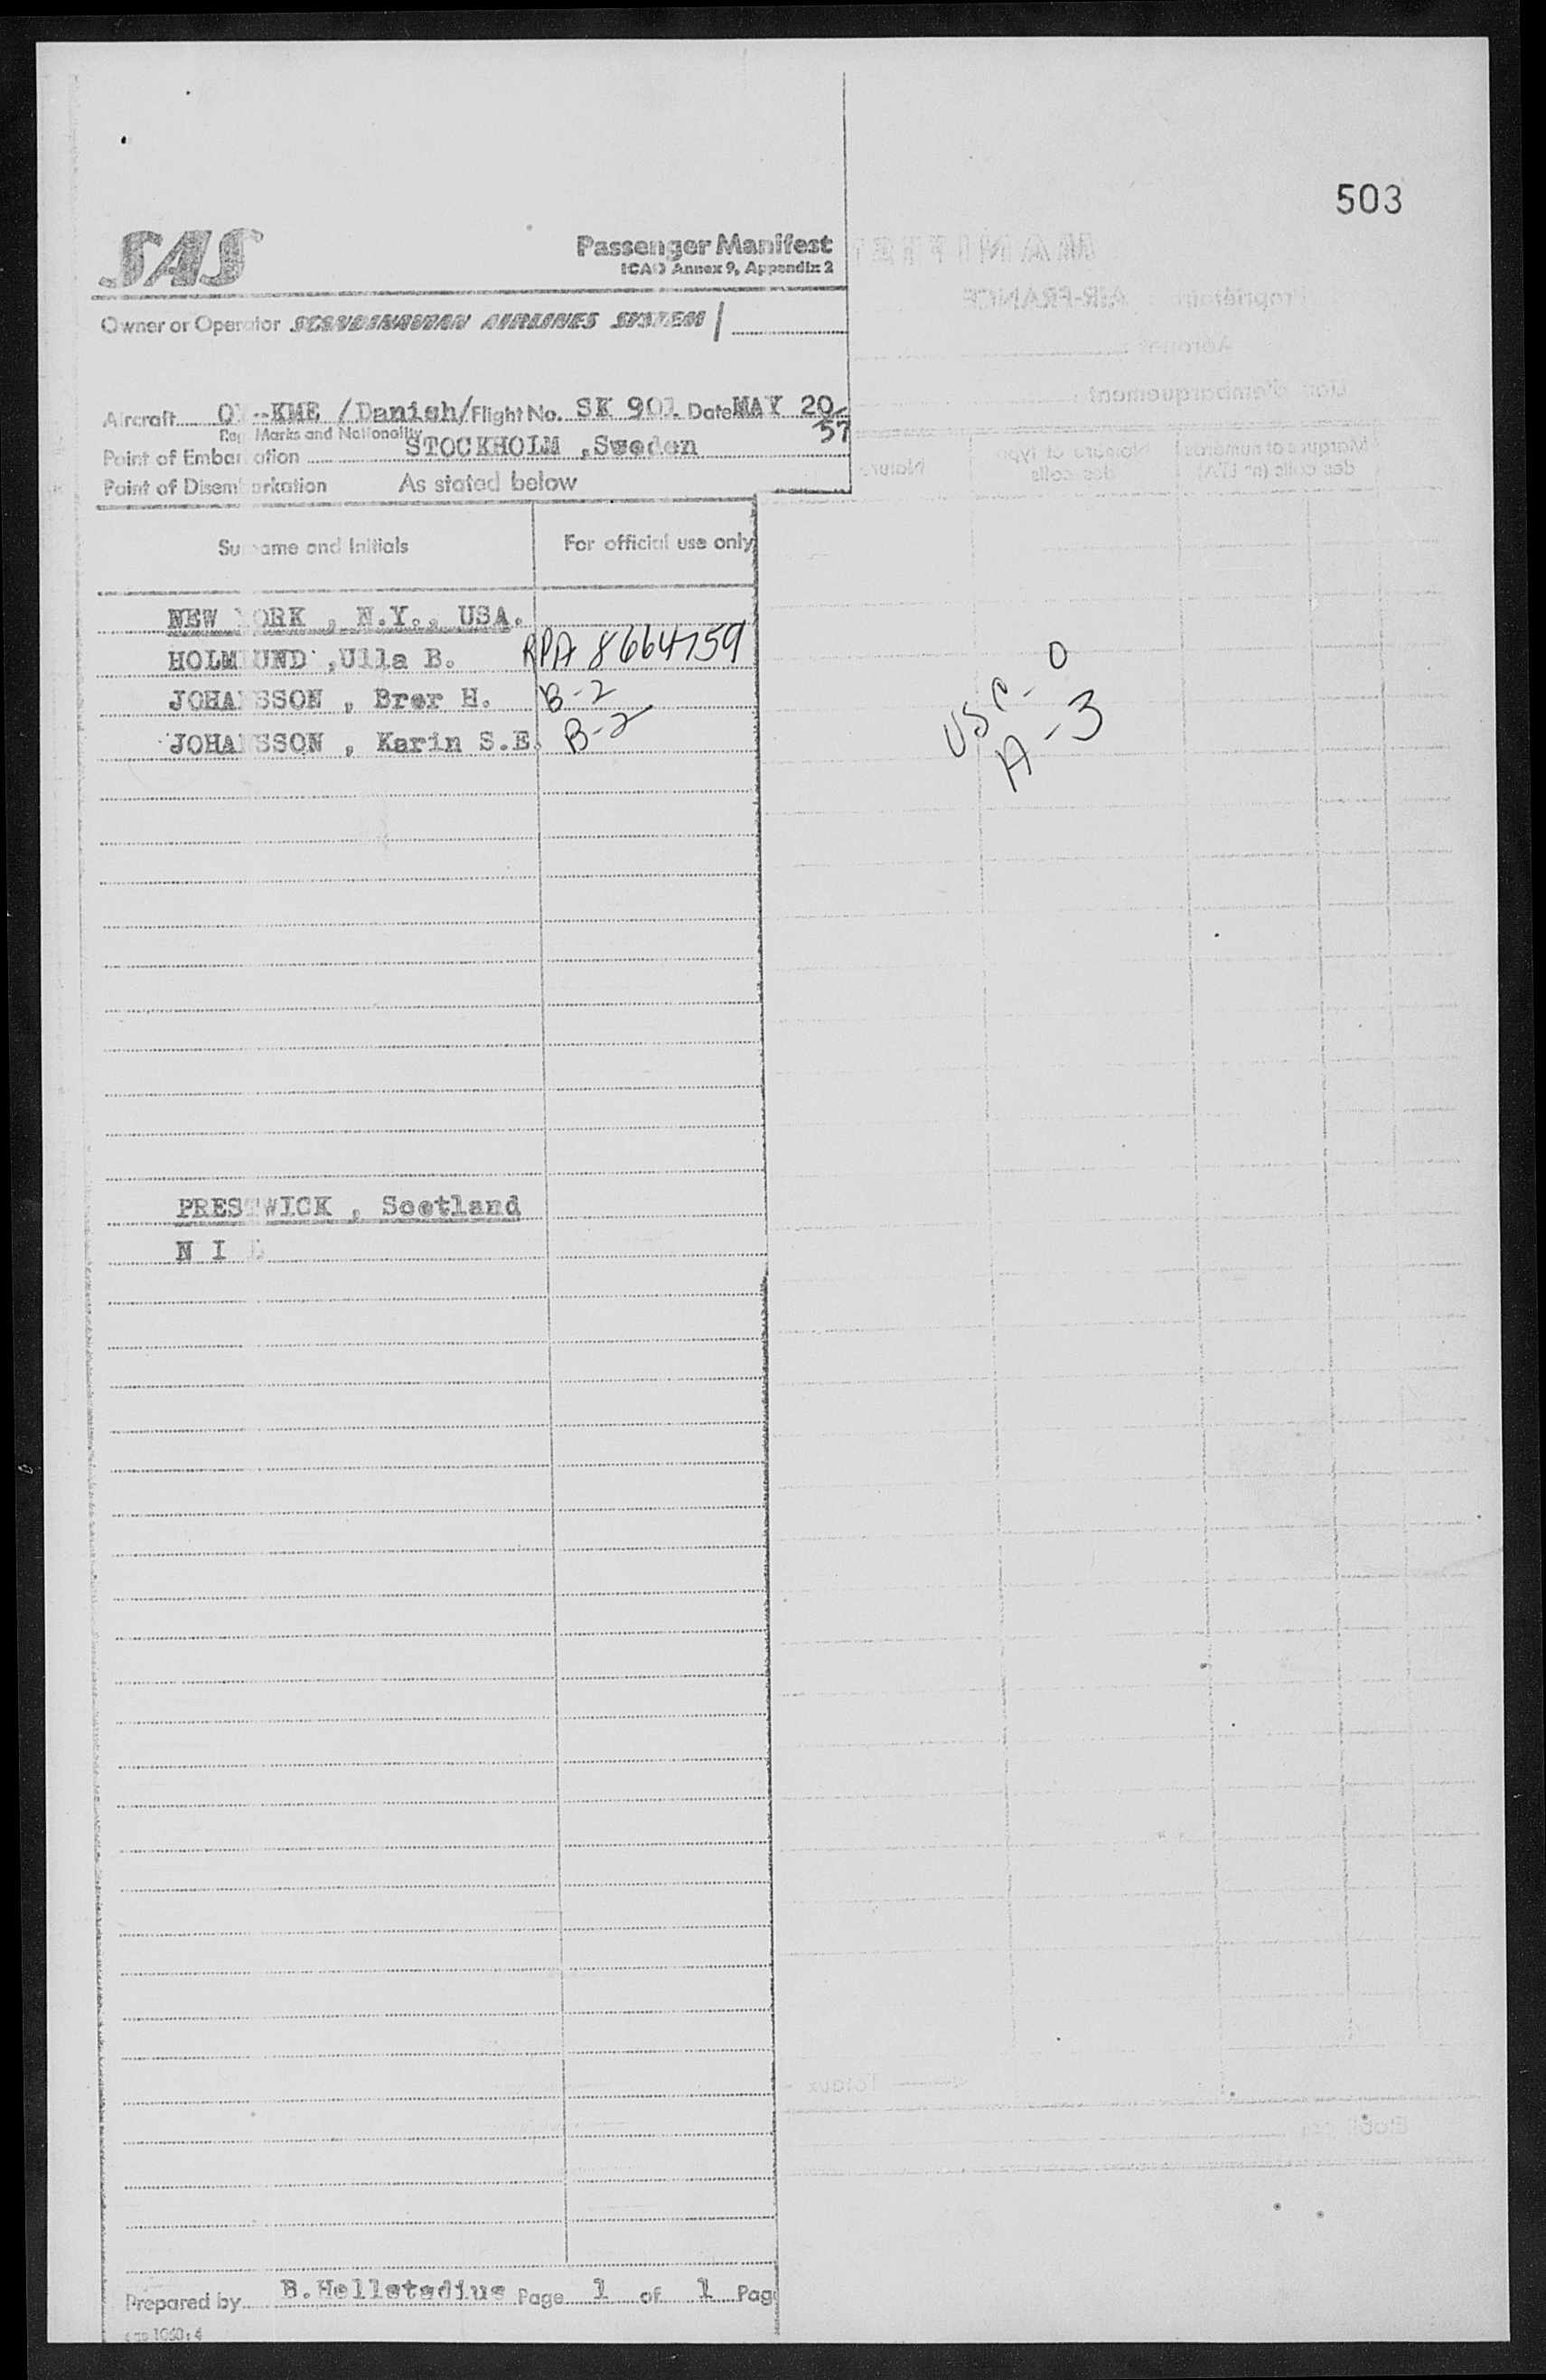 503
SAS
Passenger Manifest
ICAO Annex 9, Appendix 2
Owner or Operator SCANDINAVIAN AIRLINES SYSTEM
Aircraft O -KME /Danish/ Flight No. SK 901 Date MAY 20/57
Reg Marks and Nationality
Point of Embarkation STOCKHOLM ,Sweden
Point of Disembarkation As stated below
Surname and Initials For official use only
NEW YORK , N.Y., USA.
HOLM UND ,Ulla B. RPA 8664759
JOHA SSON , Brer H. B-2
JOHA SSON , Karin S.E. B-2
USC - 0
A - 3
PRESTWICK , Scotland
N I L
Prepared by B.Hellstadius Page 1 of 1 Page
MANIFEST
Propriétaire : AIR-FRANCE
Aéronef :
Lieu d'embarquement :
Marques et numéros des colis (n° LTA)
Nombre et type des colis
Nature
Totaux